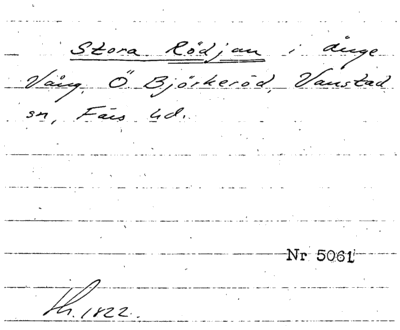 Stora Rödjan i ånge
Vång, Ö. Björkeröd, Vanstad
sn, Färs hd.
Nr 5061
1822.